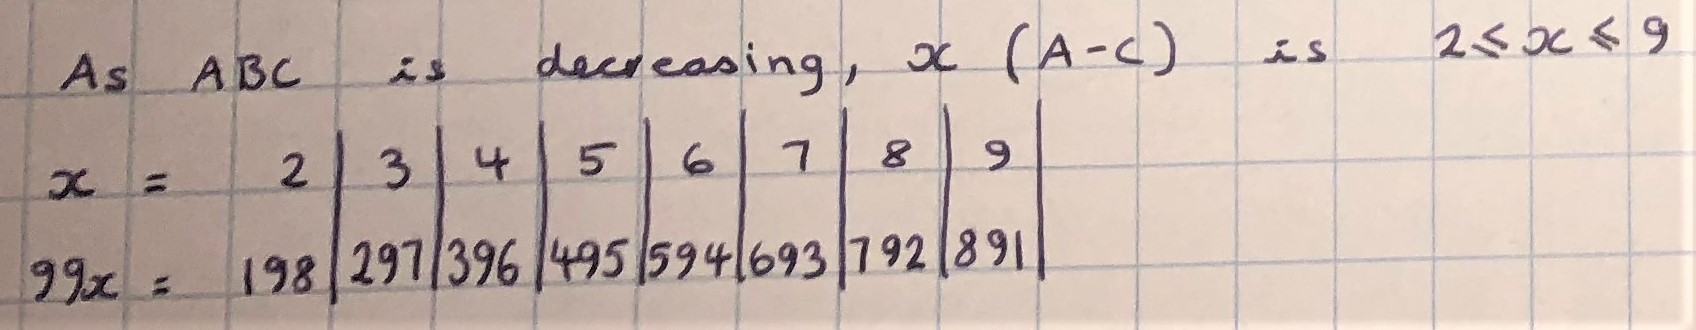 As ABC is decreasing, x (A-C) is 2 ≤ x ≤ 9
x = 2 | 3 | 4 | 5 | 6 | 7 | 8 | 9 |
99x = 198 | 297 | 396 | 495 | 594 | 693 | 792 | 891 |